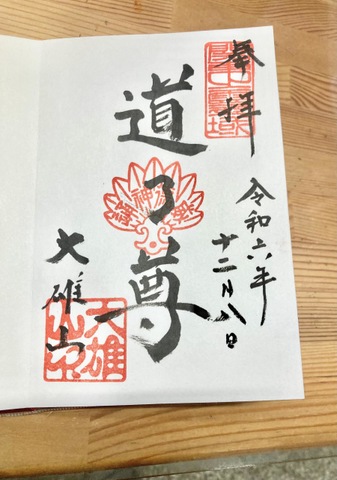 奉拝
令和六年
十二月八日
道了尊
大雄山